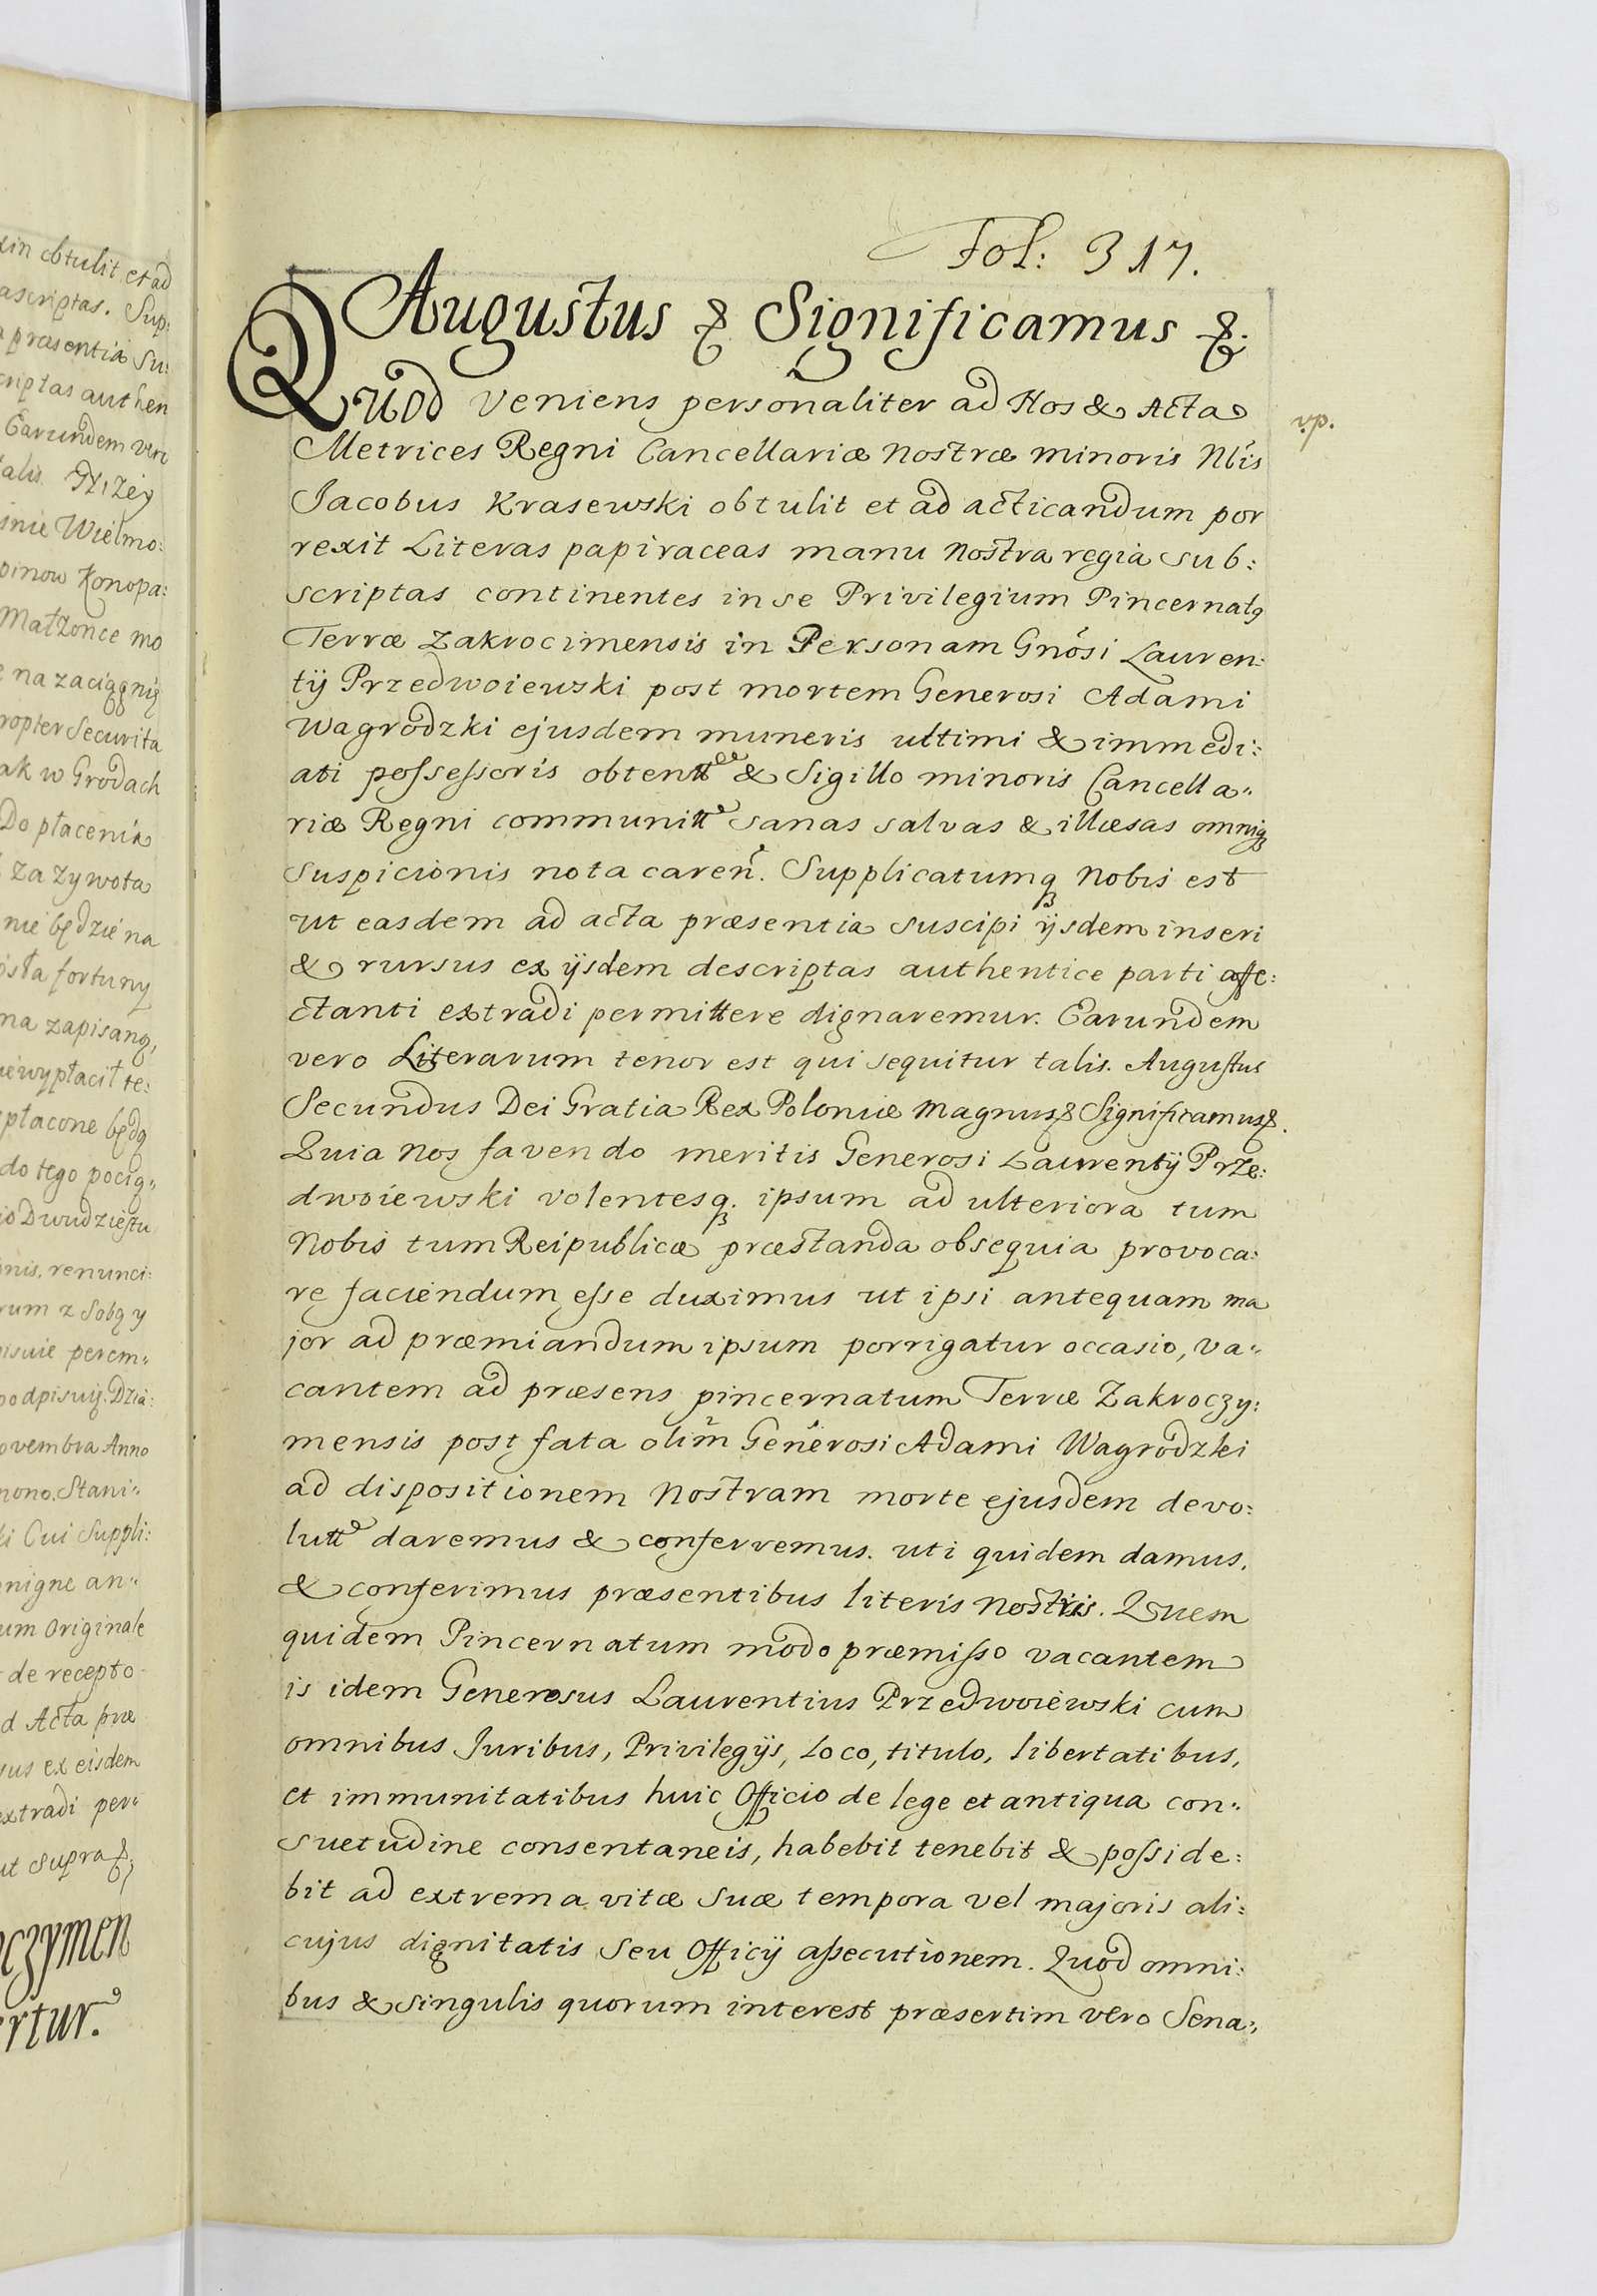 xin obtulit et ad
ascriptas. Sup:
præsentia Su:
criptas authen
Earundem vero
talis. Niżey
inie Wielmo:
pinow Konopa:
Małżonce mo
e na zaciągnię
propter Securita
ak w Grodach
Do płacenia
za zywota
nie będzie na
osła fortuny
na zapisaną,
iewypłacił te:
płacone będą
do tego pocią"
io Dwudziestu
nis, renunci:
rum z Sobą y
pisuie perem"
podpisuię. Dzia:
ovembra Anno
nono. Stani"
ki Cui Suppli:
nigne an"
um Originale
de recepto
d Acta præ
sus ex eisdem
extradi per:
ut Supra &.
oczymen
ertur.
Fol: 317.
Augustus & Significamus &.
Quod veniens personaliter ad Nos & Acta
v.p.
Metrices Regni Cancellariæ Nostræ minoris Nbis
Jacobus Krasewski obtulit et ad acticandum por
rexit Literas papiraceas manu Nostra regia sub:
scriptas continentes in se Privilegium Pincernatg
Terræ Zakrocimensis in Personam Gnosi Lauren:
tij Przedwoiewski post mortem Generosi Adami
Wagrodzki ejusdem muneris ultimi & immedi:
ati possessoris obtentt & Sigillo minoris Cancella"
riæ Regni communitt sanas salvas & illæsas omniq
suspicionis nota caren. Supplicatumq Nobis est
ut easdem ad acta præsentia suscipi ijsdem inseri
& rursus ex ijsdem descriptas authentice parti affe:
ctanti extradi permittere dignaremur. Earundem
vero Literarum tenor est qui sequitur talis. Augustus
Secundus Dei Gratia Rex Poloniæ Magnus & Significamus &.
Quia Nos favendo meritis Generosi Laurentij Prze:
dwoiewski volentesq. ipsum ad ulteriora tum
Nobis tum Reipublicæ præstanda obsequia provoca:
re faciendum esse duximus ut ipsi antequam ma
jor ad præmiandum ipsum porrigatur occasio, va"
cantem ad præsens pincernatum Terræ Zakroczy:
mensis post fata olim Generosi Adami Wagrodzki
ad dispositionem Nostram morte ejusdem devo:
lutt daremus & conferremus. uti quidem damus.
& conferimus præsentibus literis Nostris. Quem
quidem Pincernatum modo præmisso vacantem
is idem Generosus Laurentius Przedwoiewski cum
omnibus Juribus, Privilegijs, Loco, titulo, libertatibus,
et immunitatibus huic Officio de lege et antiqua con"
suetudine consentaneis, habebit tenebit & posside:
bit ad extrema vitæ suæ tempora vel majoris ali:
cujus dignitatis seu Officij assecutionem. Quod omni:
bus & singulis quorum interest præsertim vero Sena:,